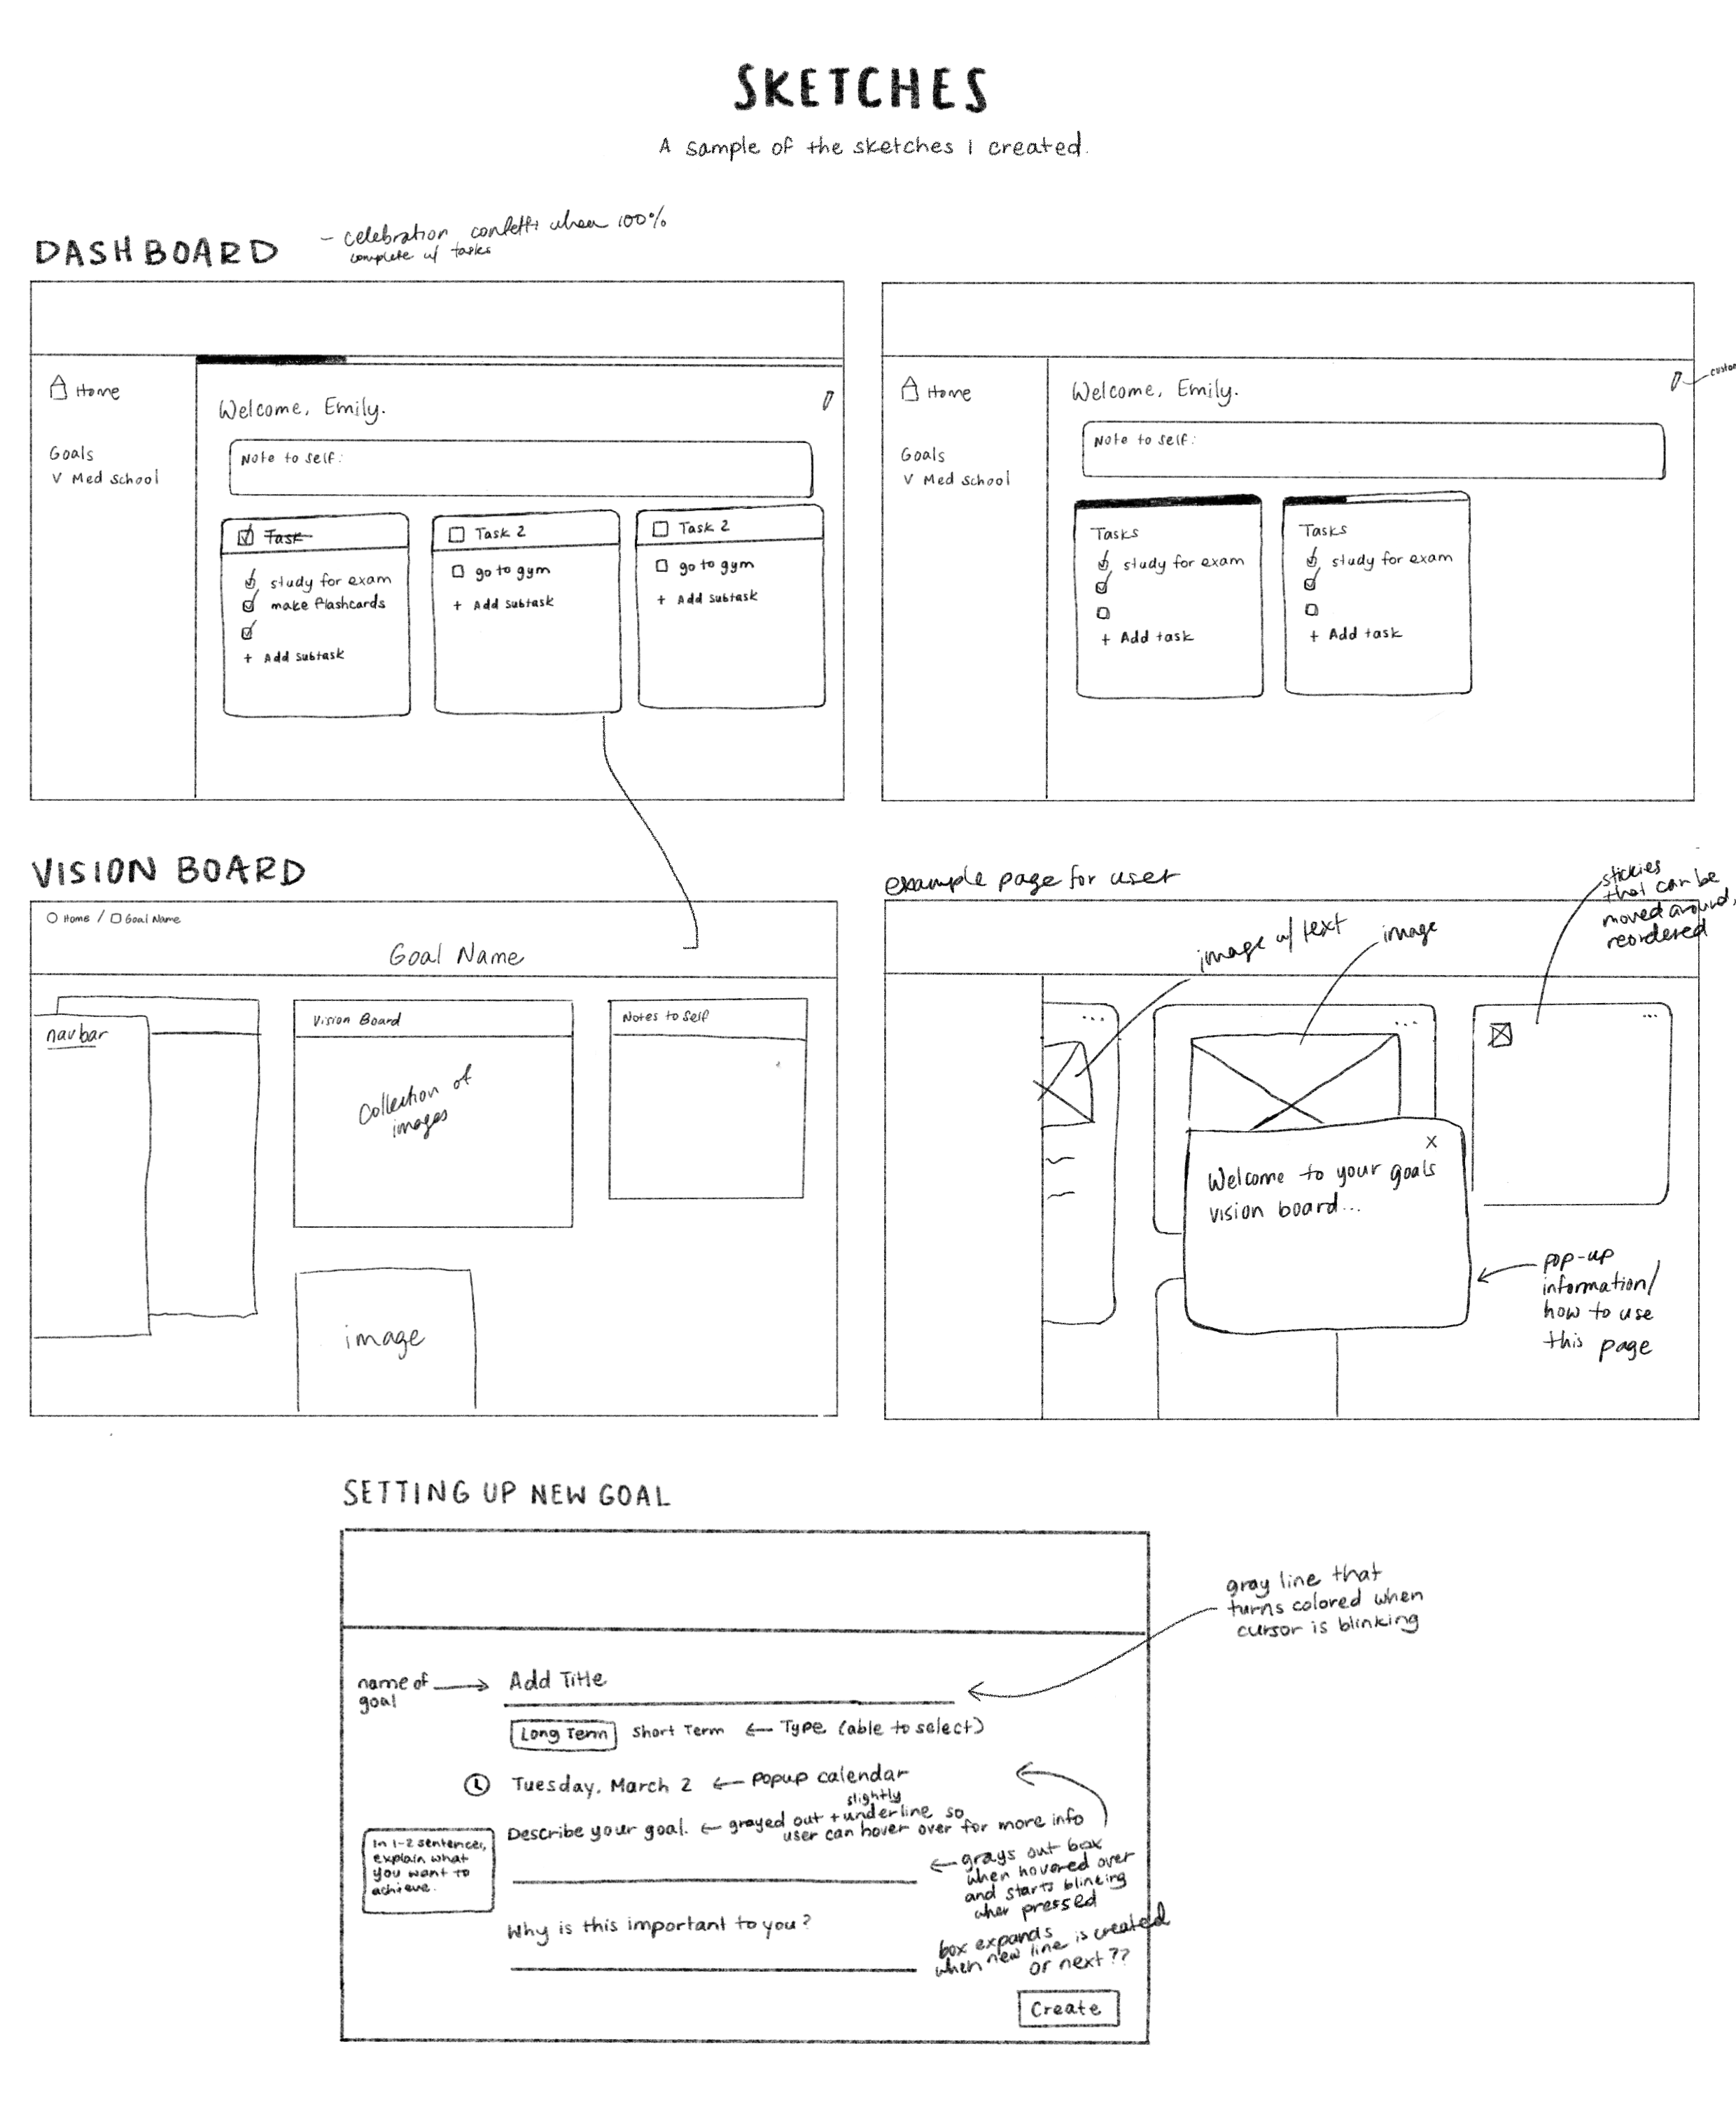 SKETCHES
A sample of the sketches I created.
DASHBOARD
- celebration confetti when 100%
complete w/ tasks
Home
Goals
V Med School
Welcome, Emily.
Note to self:
Task
study for exam
make flashcards
+ Add subtask
Task 2
go to gym
+ Add subtask
Task 2
go to gym
+ Add subtask
Home
Goals
V Med School
Welcome, Emily.
Note to self:
Tasks
study for exam
+ Add task
Tasks
study for exam
+ Add task
VISION BOARD
Home / Goal Name
Goal Name
navbar
Vision Board
Collection of
images
Notes to Self
image
example page for user
image w/ text
image
stickies
that can be
moved around,
reordered
...
...
...
X
Welcome to your goals
vision board...
pop-up
information/
how to use
this page
SETTING UP NEW GOAL
gray line that
turns colored when
cursor is blinking
name of
goal
Add Title
Long Term Short Term ← Type (able to select)
Tuesday, March 2 ← popup calendar
slightly
Describe your goal. ← grayed out + underline so
user can hover over for more info
In 1-2 sentences,
explain what
you want to
achieve.
← grays out box
when hovered over
and starts blinking
when pressed
Why is this important to you?
box expands
when new line is created
or next??
Create